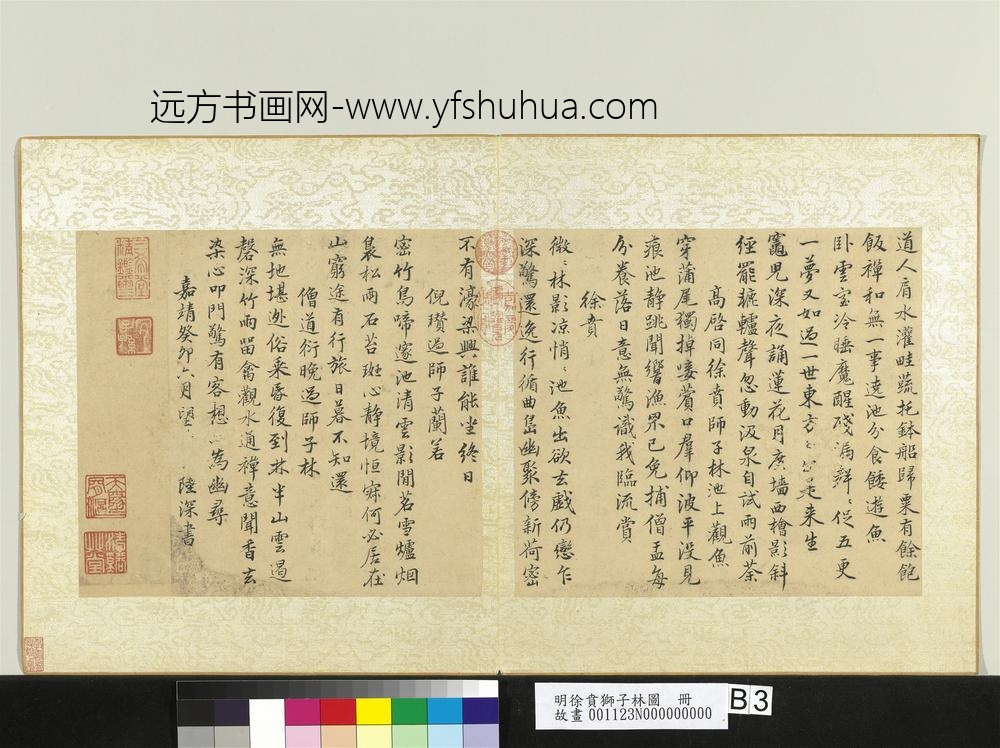 远方书画网-www.yfshuhua.com
道人肩水灌畦蔬托鉢船歸粟有餘飽
飯禪和無一事遶池分食餧遊魚
卧雲室冷睡魔醒殘漏
促五更
一夢又如過一世東方
是来生
竈兒深夜誦蓮花月度墻西檜影斜
經罷轆轤聲忽動汲泉自試雨前茶
高啓同徐賁師子林池上觀魚
穿蒲尾獨掉唼蘋口羣仰波平没見
痕池静跳聞響漁罘已免捕僧盂每
分養落日意無驚識我臨流賞
徐賁
微〻林影凉悄〻池魚出欲去戲仍戀乍
深驚還逸行循曲島幽聚傍新荷密
不有濠梁興誰能坐終日
倪瓚過師子蘭若
密竹鳥啼邃池清雲影閒茗雪爐烟
裊松雨石苔斑心静境恒寂何必居在
山窮途有行旅日暮不知還
僧道衍晚過師子林
無地堪逃俗乘昏復到林半山雲遏
磬深竹雨留禽觀水通禪意聞香去
染心叩門驚有客想
為幽尋
嘉靖癸卯六月望
陸深書
明徐賁獅子林圖 冊
故畫 001123N000000000
B3